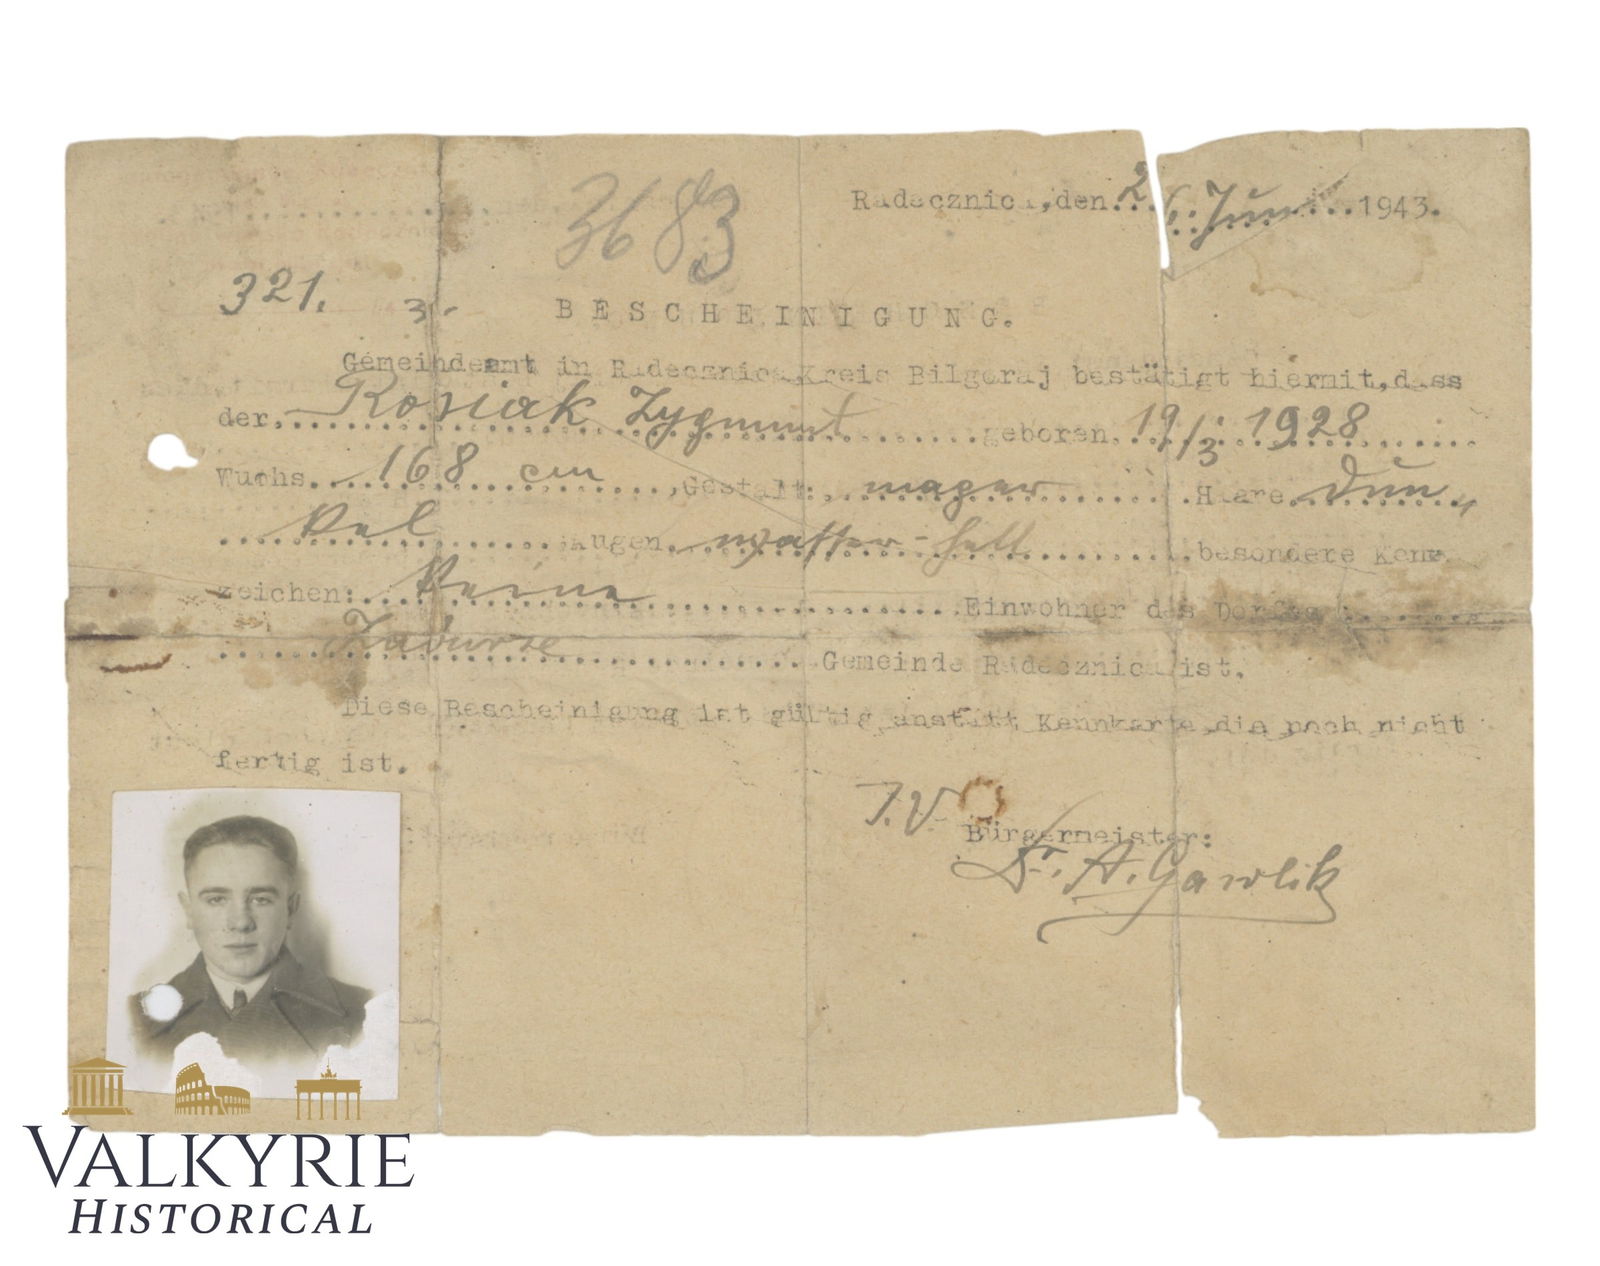 Radecznica,den...26. Juni...1943.
3683
321. 3.
BESCHEINIGUNG.
Gemeindeamt in Radecznica,Kreis Bilgoraj bestätigt hiermit,dass
der. Rosiak Zygmunt geboren. 19/3. 1928
Wuchs. 168 cm ,Gestalt: mager .Haare. dun„
kel Augen. wasser-hell .besondere Kenn
zeichen: Keine Einwohner des Dorfes :
Zaburze Gemeinde Radecznica ist.
Diese Bescheinigung ist gültig anstatt Kennkarte,die noch nicht
fertig ist.
I.V.
Bürgermeister:
Dr. A. Gawlik
VALKYRIE
HISTORICAL